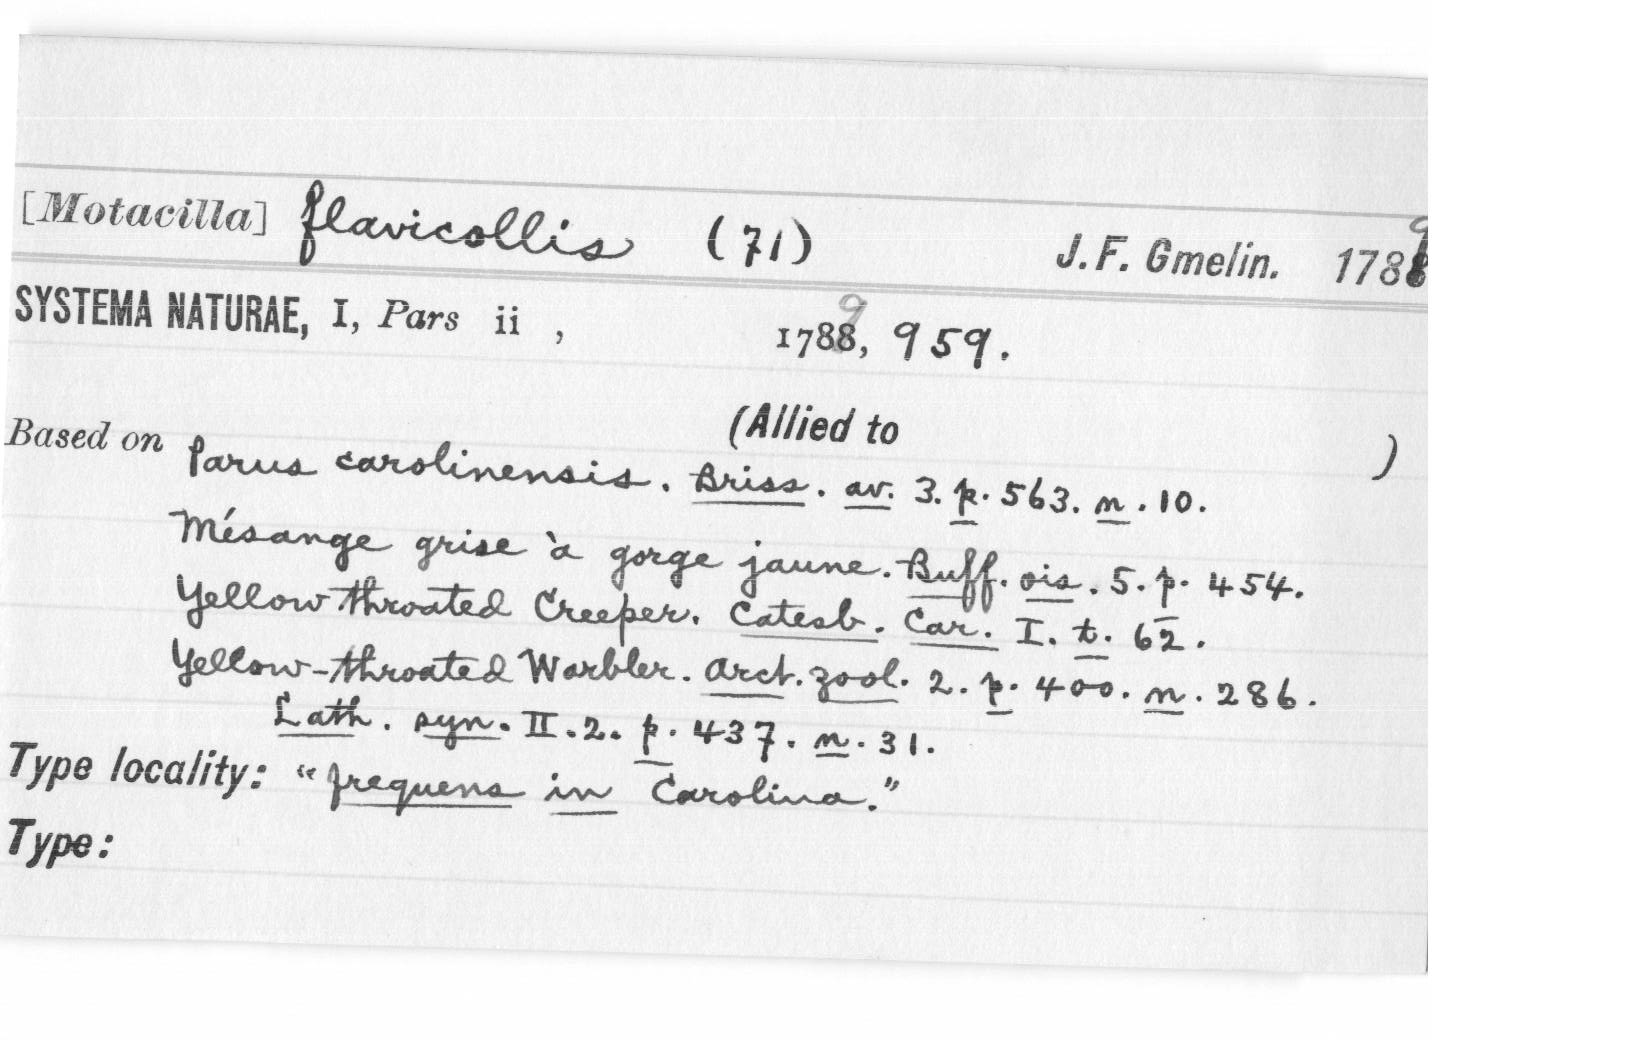 [Motacilla] flavicollis (71) J. F. Gmelin. 1789
SYSTEMA NATURAE, I, Pars ii , 1789, 959.
(Allied to )
Based on Parus carolinensis. Briss. av. 3. p. 563. n. 10.
Mésange grise à gorge jaune. Buff. ois. 5. p. 454.
Yellow throated Creeper. Catesb. Car. I. t. 62.
Yellow-throated Warbler. Arct. zool. 2. p. 400. n. 286.
Lath. syn. II. 2. p. 437. n. 31.
Type locality: "frequens in Carolina."
Type: